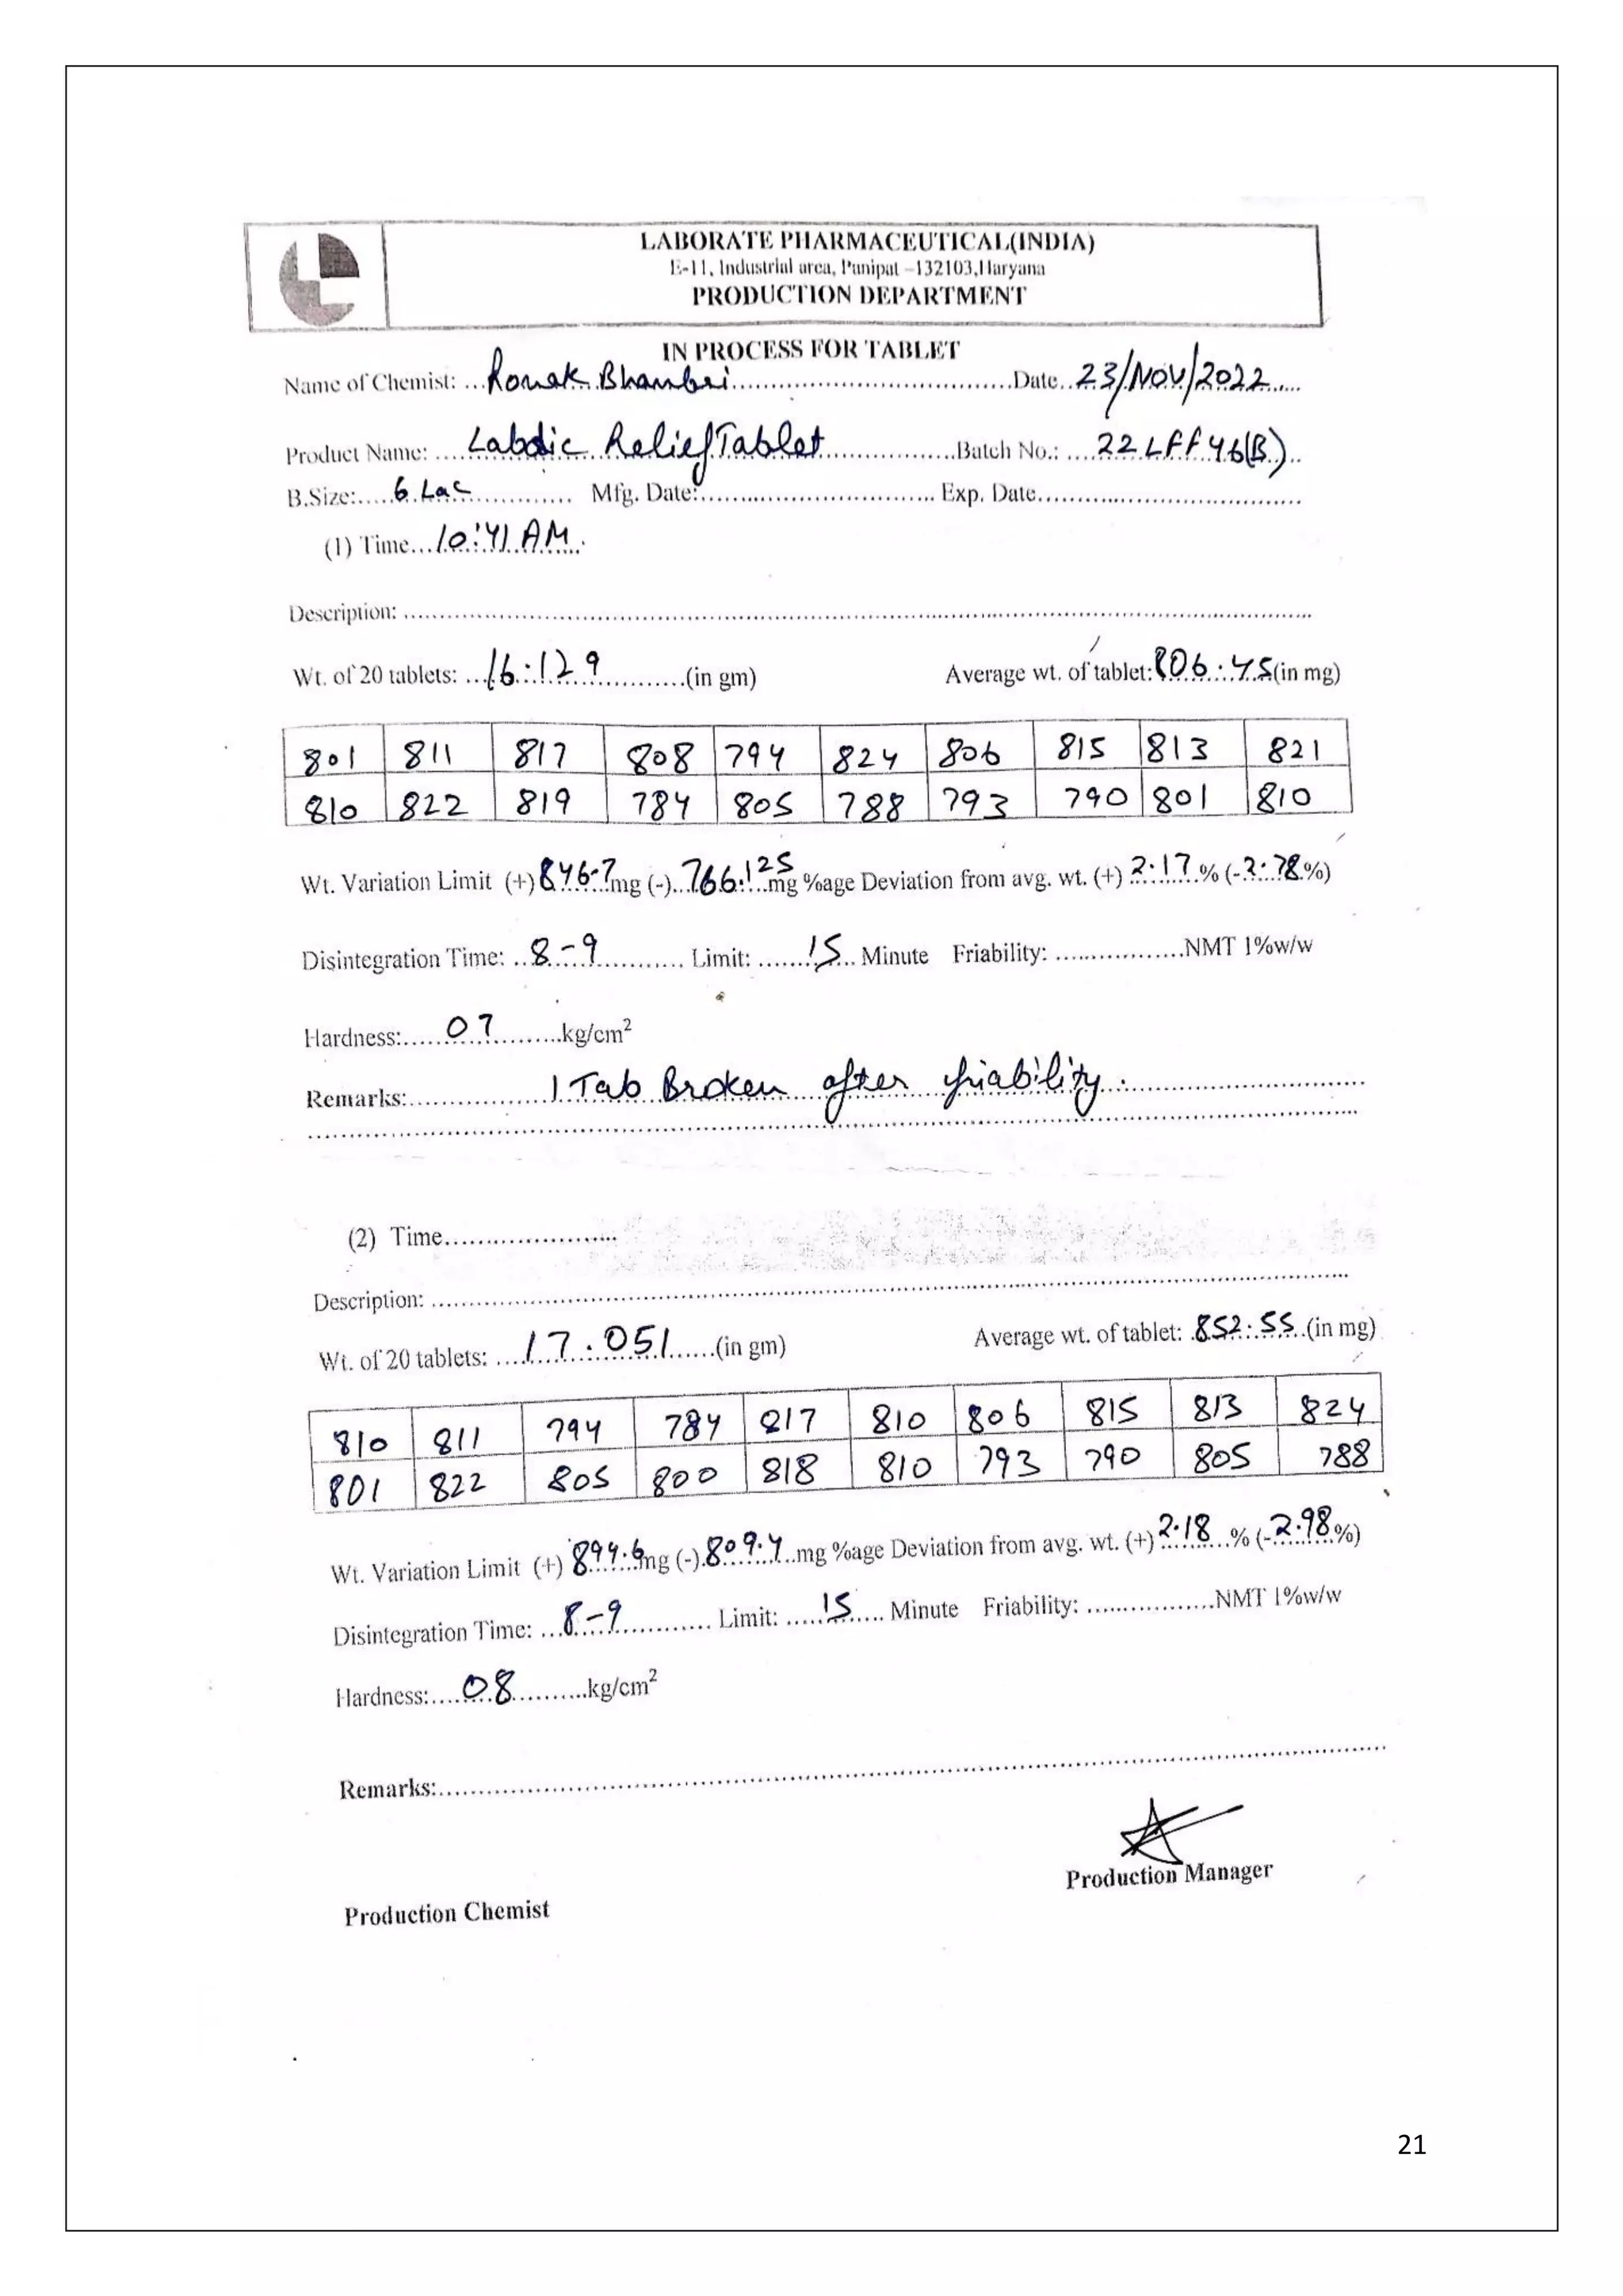 LABORATE PHARMACEUTICAL(INDIA)
E-11, Industrial area, Panipat -132103,Haryana
PRODUCTION DEPARTMENT
IN PROCESS FOR TABLET
Name of Chemist: ...Ronak Bhambri......Date..23/NOV/2022.....
Product Name: ....Labdic Relief Tablet......Batch No.: ....22LFF46(B)..
B.Size:.....6 Lac............ Mfg. Date:.............................. Exp. Date..................................
(1) Time...10:41 AM.....
Description: ..........................................................................................
Wt. of 20 tablets: ...16.129............(in gm) Average wt. of tablet:806.45(in mg)
801 811 817 808 794 824 806 815 813 821
810 822 819 784 805 788 793 790 801 810
Wt. Variation Limit (+)846.7mg (-)...766.125mg %age Deviation from avg. wt. (+) 2.17% (-2.78%)
Disintegration Time: ..8-9............ Limit: .......15.. Minute Friability: .................NMT 1%w/w
Hardness:.....07..........kg/cm²
Remarks:..................1 Tab Broken after friability...............................
(2) Time.......................
Description: ..........................................................................................
Wt. of 20 tablets: ....17.051......(in gm) Average wt. of tablet: .852.55..(in mg)
810 811 794 784 817 810 806 815 813 824
801 822 805 800 818 810 793 790 805 788
Wt. Variation Limit (+) 894.6mg (-).809.4..mg %age Deviation from avg. wt. (+)2.18...% (-2.98%)
Disintegration Time: ...8-9............ Limit: .....15.... Minute Friability: .................NMT 1%w/w
Hardness:....08..........kg/cm²
Remarks:..........................................................................................
Production Manager
Production Chemist
21